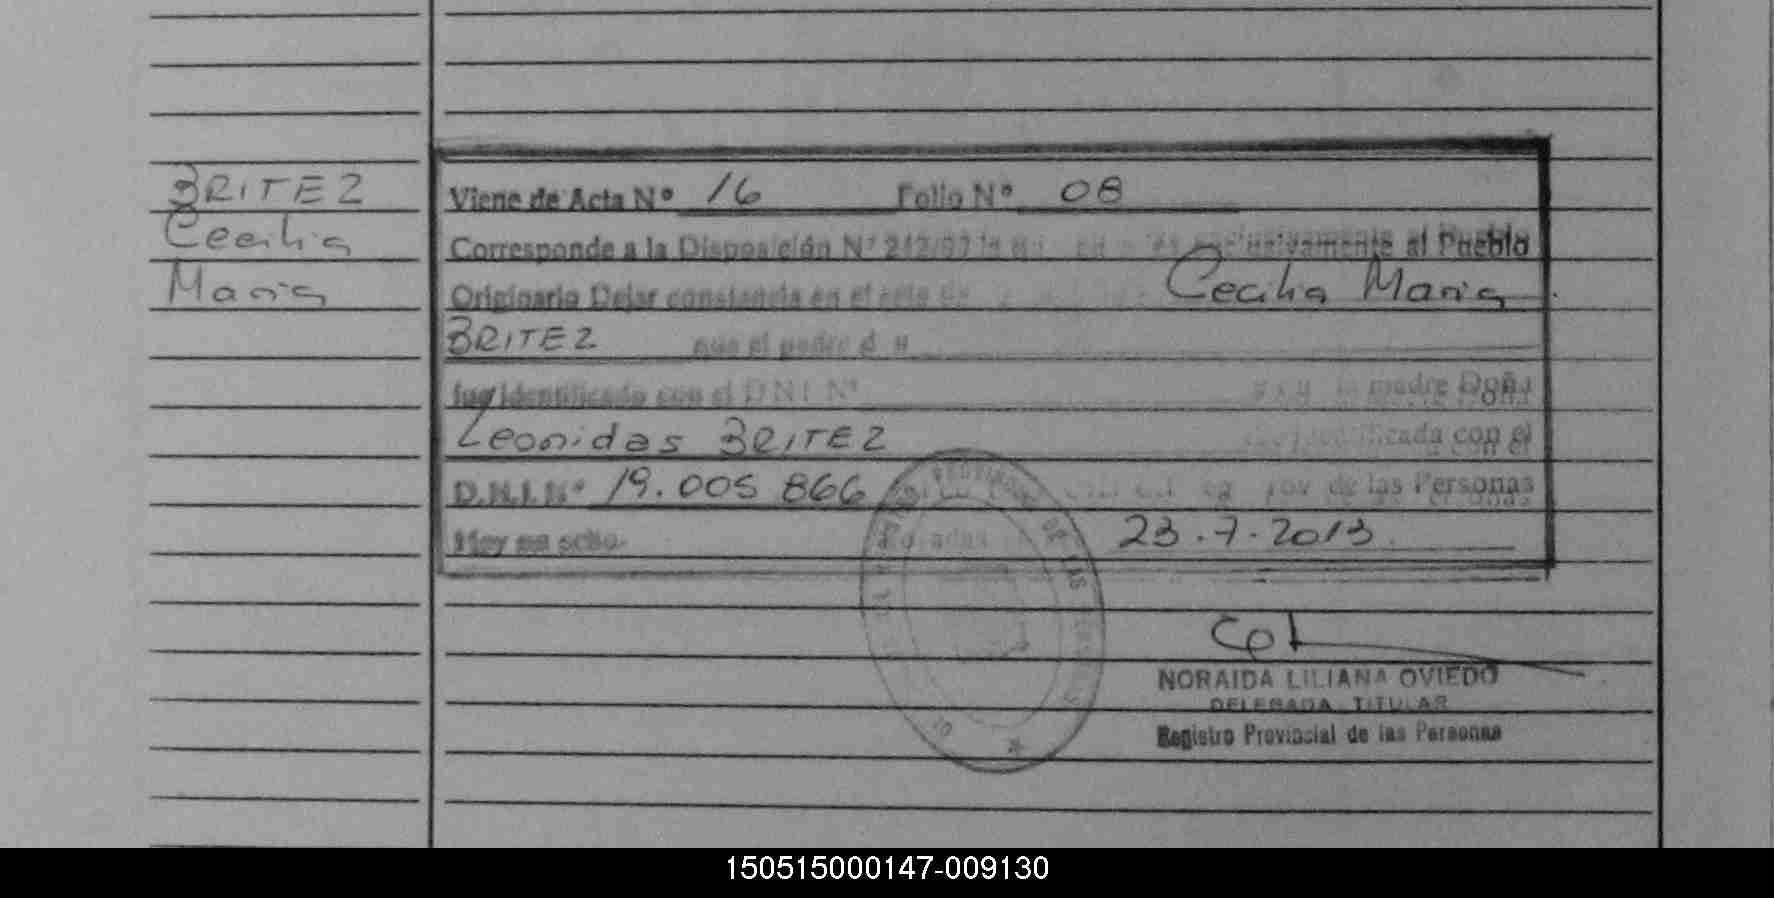 BRITEZ
Cecilia
Maria
Viene de Acta Nº 16 Folio Nº 08
Corresponde a la Disposición Nº 242/97 exclusivamente al Pueblo
Originario Dejar constancia en el acta de Cecilia Maria
BRITEZ que el padre
fue identificado con el DNI Nº y la madre Doña
Leonidas BRITEZ identificada con el
D.N.I. Nº 19.005 866 de las Personas
Hoy 23.7.2013
NORAIDA LILIANA OVIEDO
DELEGADA TITULAR
Registro Provincial de las Personas
150515000147-009130